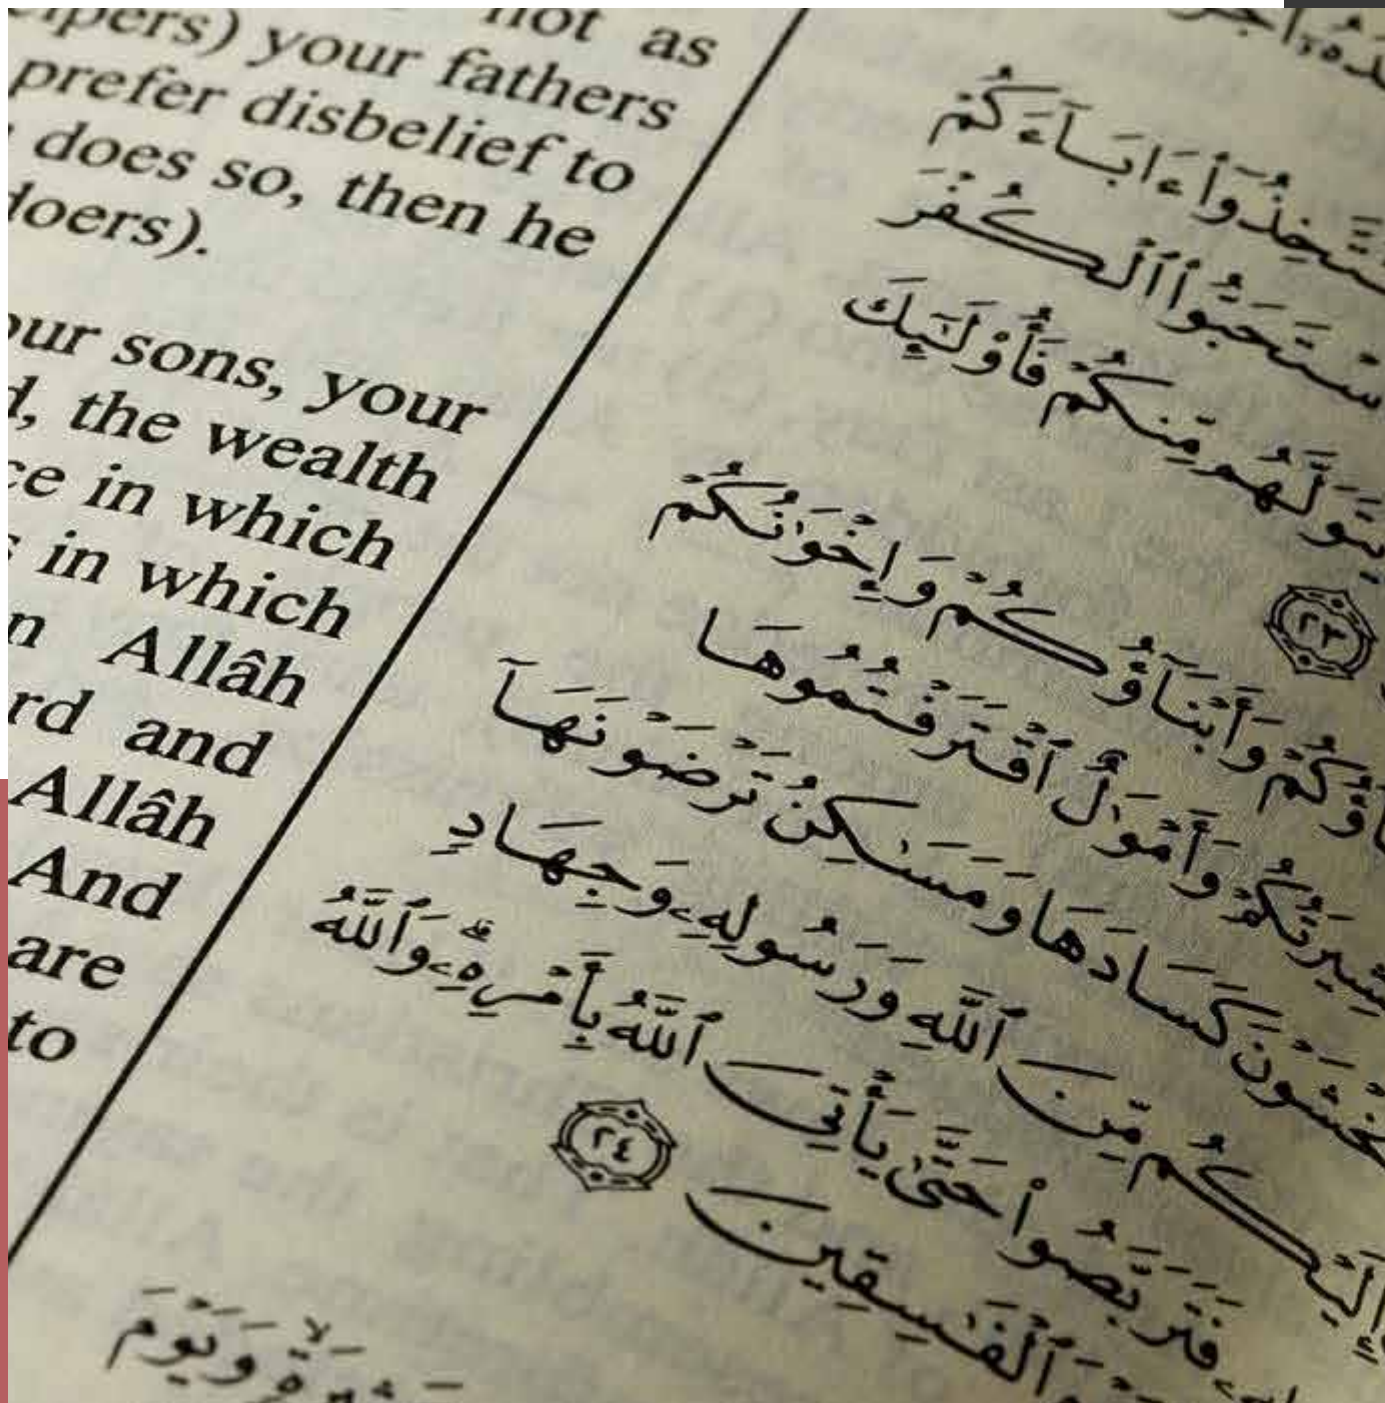 not as
your fathers
prefer disbelief to
does so, then he
sons, your
the wealth
in which
in which
Allâh
and
Allâh
And
are
to
ءَابَآءَكُمْ
ٱلْكُفْرَ
مِّنكُمْ فَأُو۟لَٰٓئِكَ
٢٣
وَأَبْنَآؤُكُمْ وَإِخْوَٰنُكُمْ
وَأَمْوَٰلٌ ٱقْتَرَفْتُمُوهَا
كَسَادَهَا وَمَسَٰكِنُ تَرْضَوْنَهَآ
إِلَيْكُم مِّنَ ٱللَّهِ وَرَسُولِهِۦ وَجِهَادٍ
فَتَرَبَّصُوا۟ حَتَّىٰ يَأْتِىَ ٱللَّهُ بِأَمْرِهِۦ ۗ وَٱللَّهُ
ٱلْفَٰسِقِينَ ٢٤
وَيَوْمَ